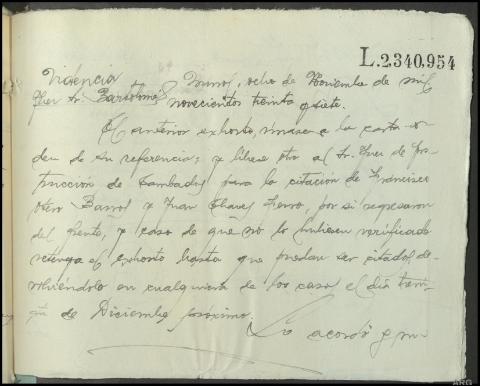 L.2,340,954
Providencia Minoi, ocho de Noviembre de mil
Juez Sr. Bartolomé novecientos treinta y siete.
El anterior exhorto, únase a la carta or-
den de su referencia; y líbrese otro al Sr. Juez de Ins-
trucción de Cambados para la citación de Francisco
Otero Barros y Juan Chaves Ferro, por si regresaron
del frente, y caso de que no lo hubiesen verificado
retenga el exhorto hasta que puedan ser citados de-
volviéndolo en cualquiera de los casos el día trein-
ta de Diciembre próximo.
Lo acordó y
ARG